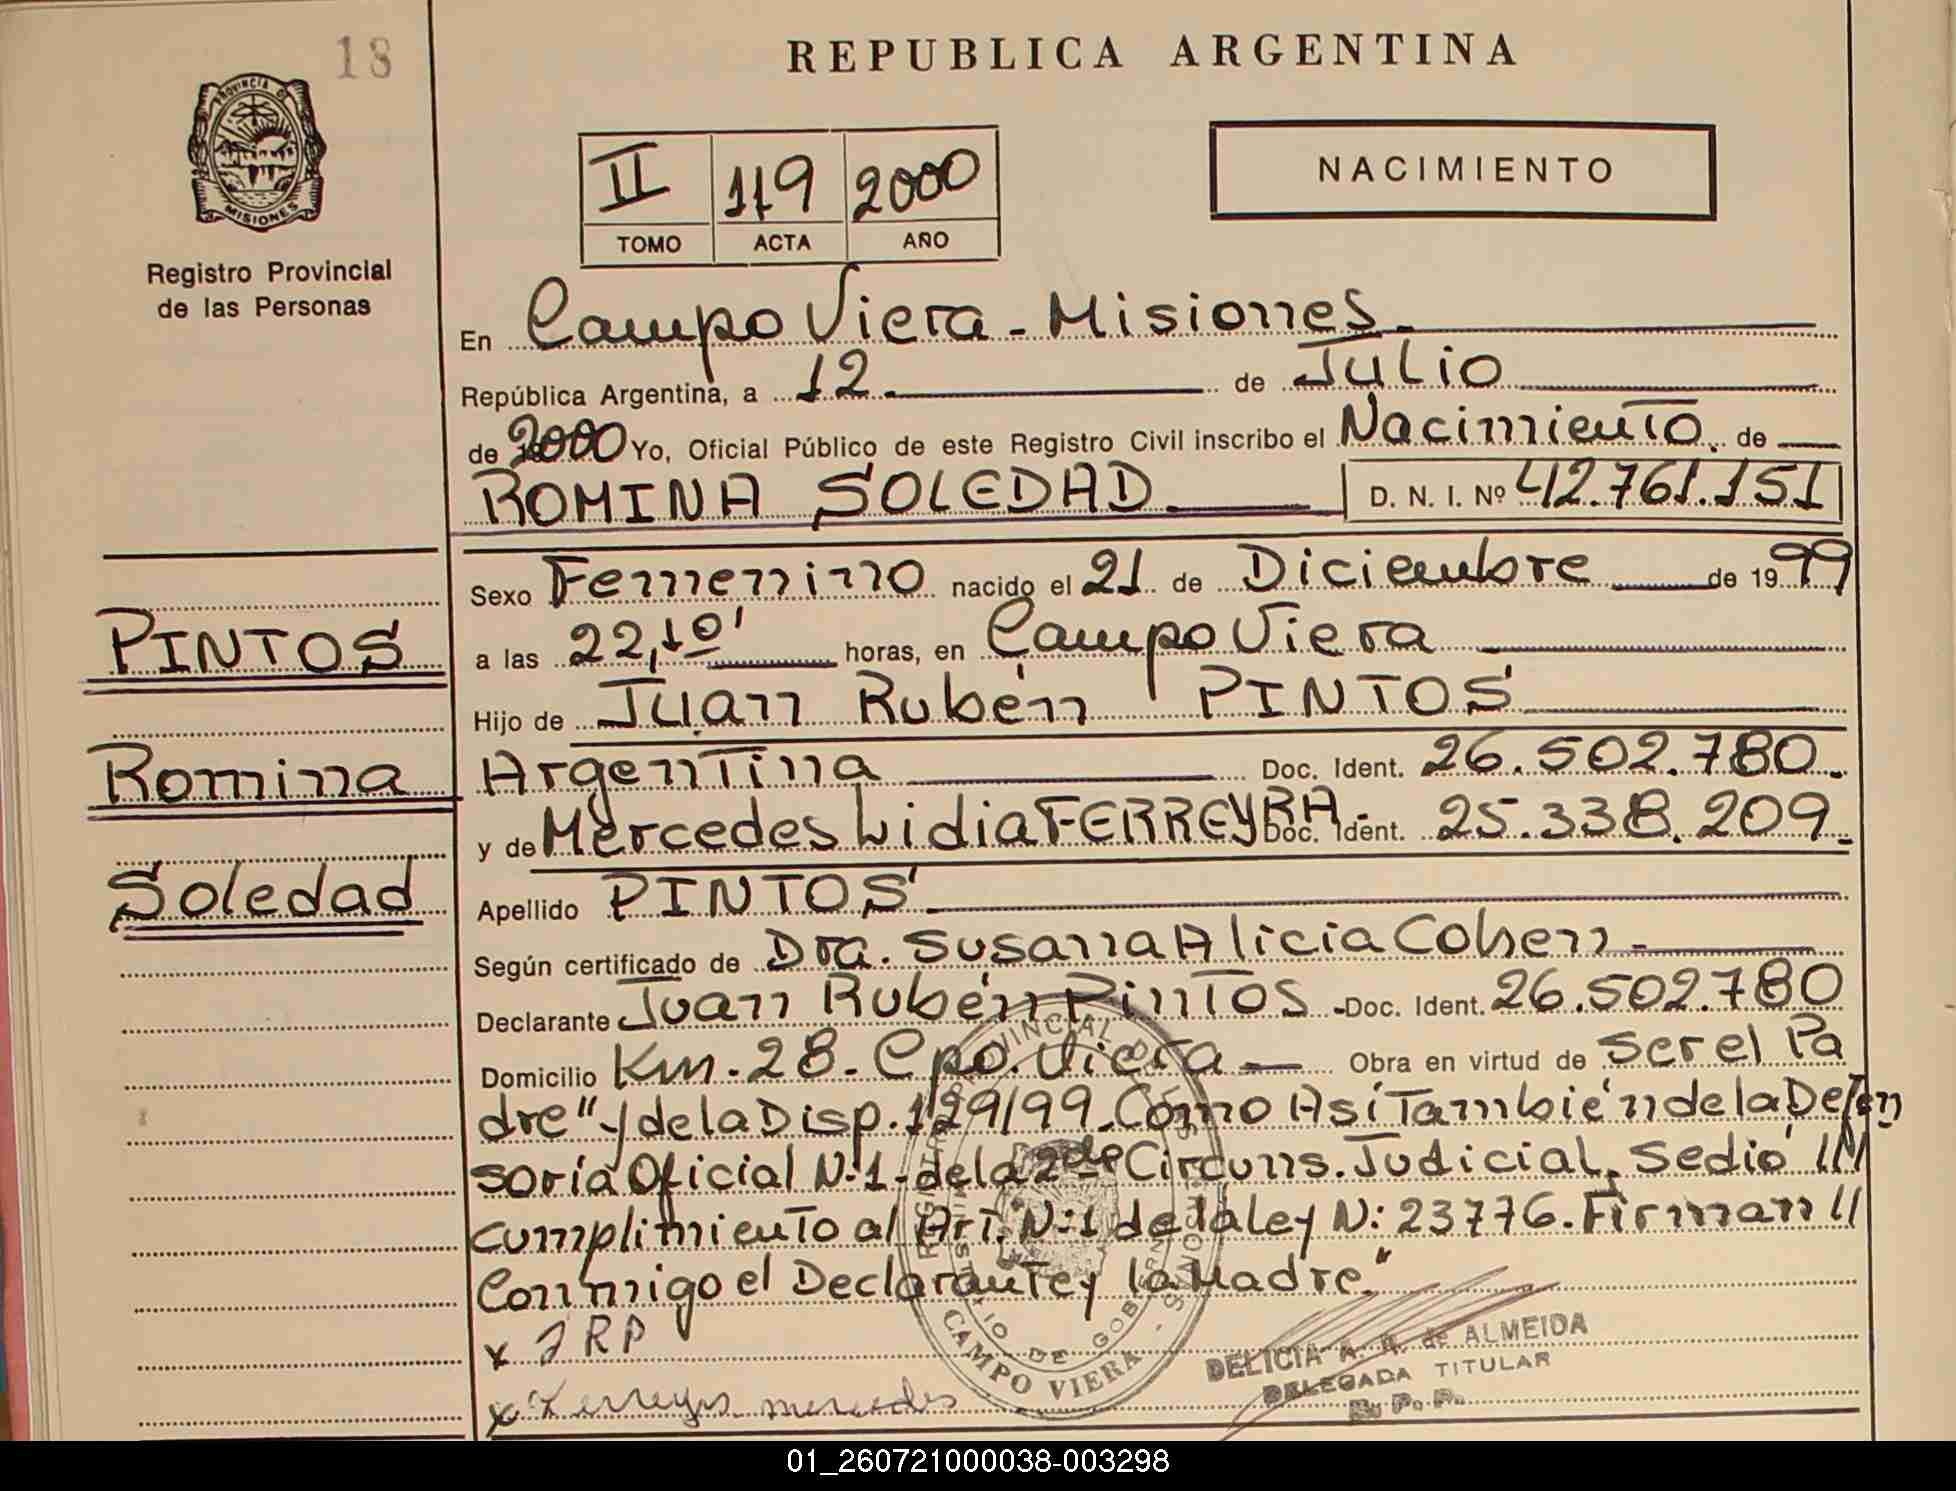 18
REPUBLICA ARGENTINA
PROVINCIA DE
MISIONES
Registro Provincial
de las Personas
II 119 2000
TOMO ACTA AÑO
NACIMIENTO
En Campo Viera - Misiones.
República Argentina, a 12 de Julio
de 2000 Yo, Oficial Público de este Registro Civil inscribo el Nacimiento de
ROMINA SOLEDAD D. N. I. Nº 42.761.151
Sexo Femenino nacido el 21 de Diciembre de 1999
PINTOS
a las 22,10' horas, en Campo Viera
Hijo de Juan Rubén PINTOS
Romina
Argentina Doc. Ident. 26.502.780.
y de Mercedes Lidia FERREYRA - Doc. Ident. 25.338.209.
Soledad
Apellido PINTOS
Según certificado de Dra. Susana Alicia Cohen -
Declarante Juan Rubén Pintos - Doc. Ident. 26.502.780
Domicilio Km. 28 - Cpo. Viera Obra en virtud de ser el Pa
dre" y de la Disp. 129/99. Como Asi También de la Defen
soría Oficial N:1 - de la 2da Circuns. Judicial. Sedió ///
cumplimiento al Art. N:1 de la ley N: 23776. Firman //
Conmigo el Declarante y la Madre."
x JRP
x Ferreyra mercedes
CAMPO VIERA
DELICIA A. de ALMEIDA
DELEGADA TITULAR
R. P. P.
01_260721000038-003298